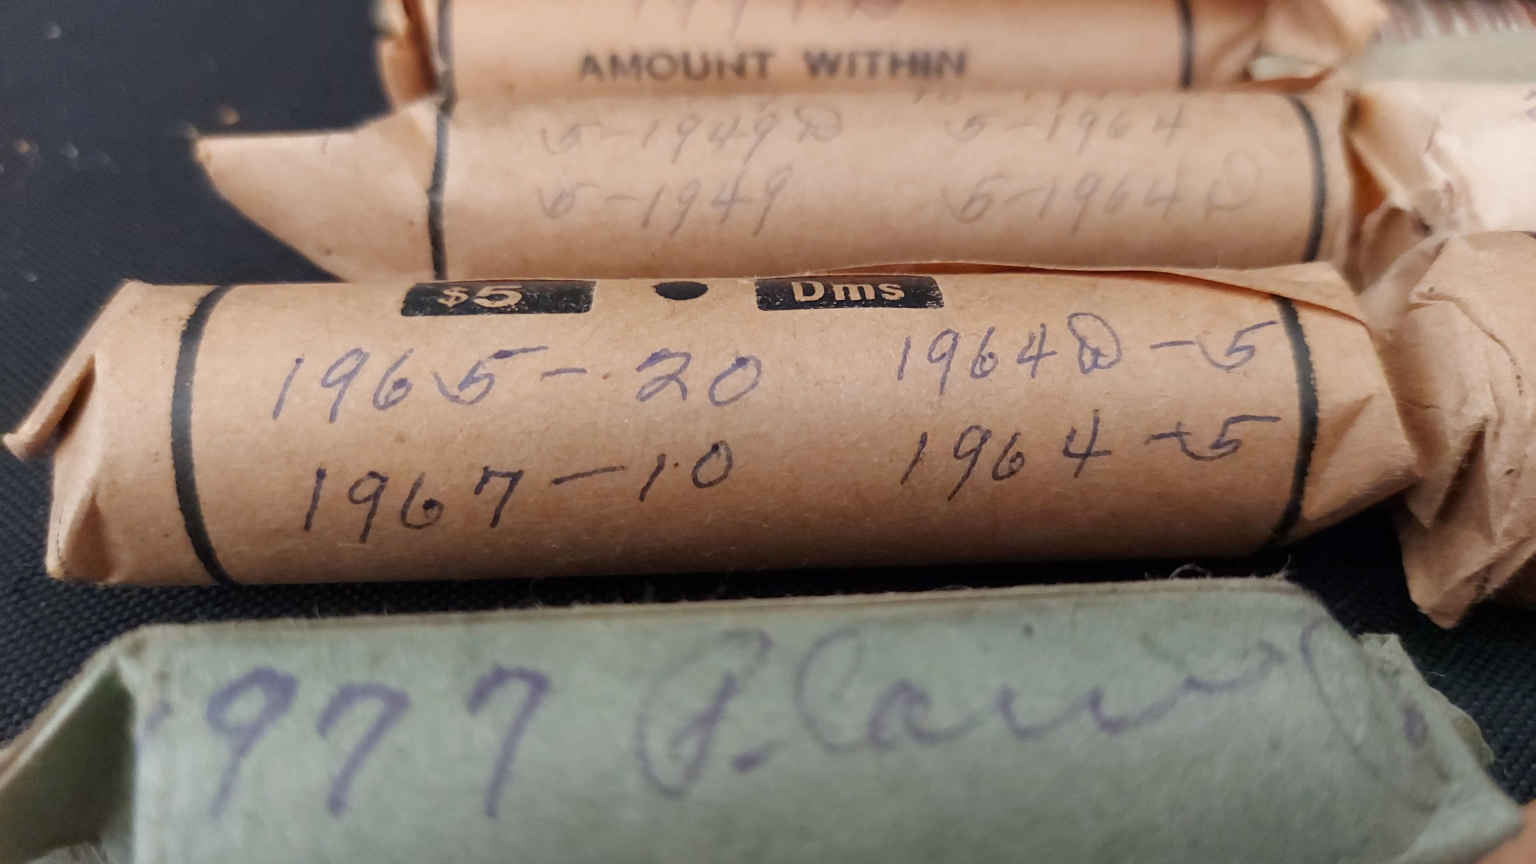 AMOUNT WITHIN
5-1949D 5-1964
5-1949 5-1964D
$5 Dms
1965-20 1964D-5
1967-10 1964-5
977 Plain